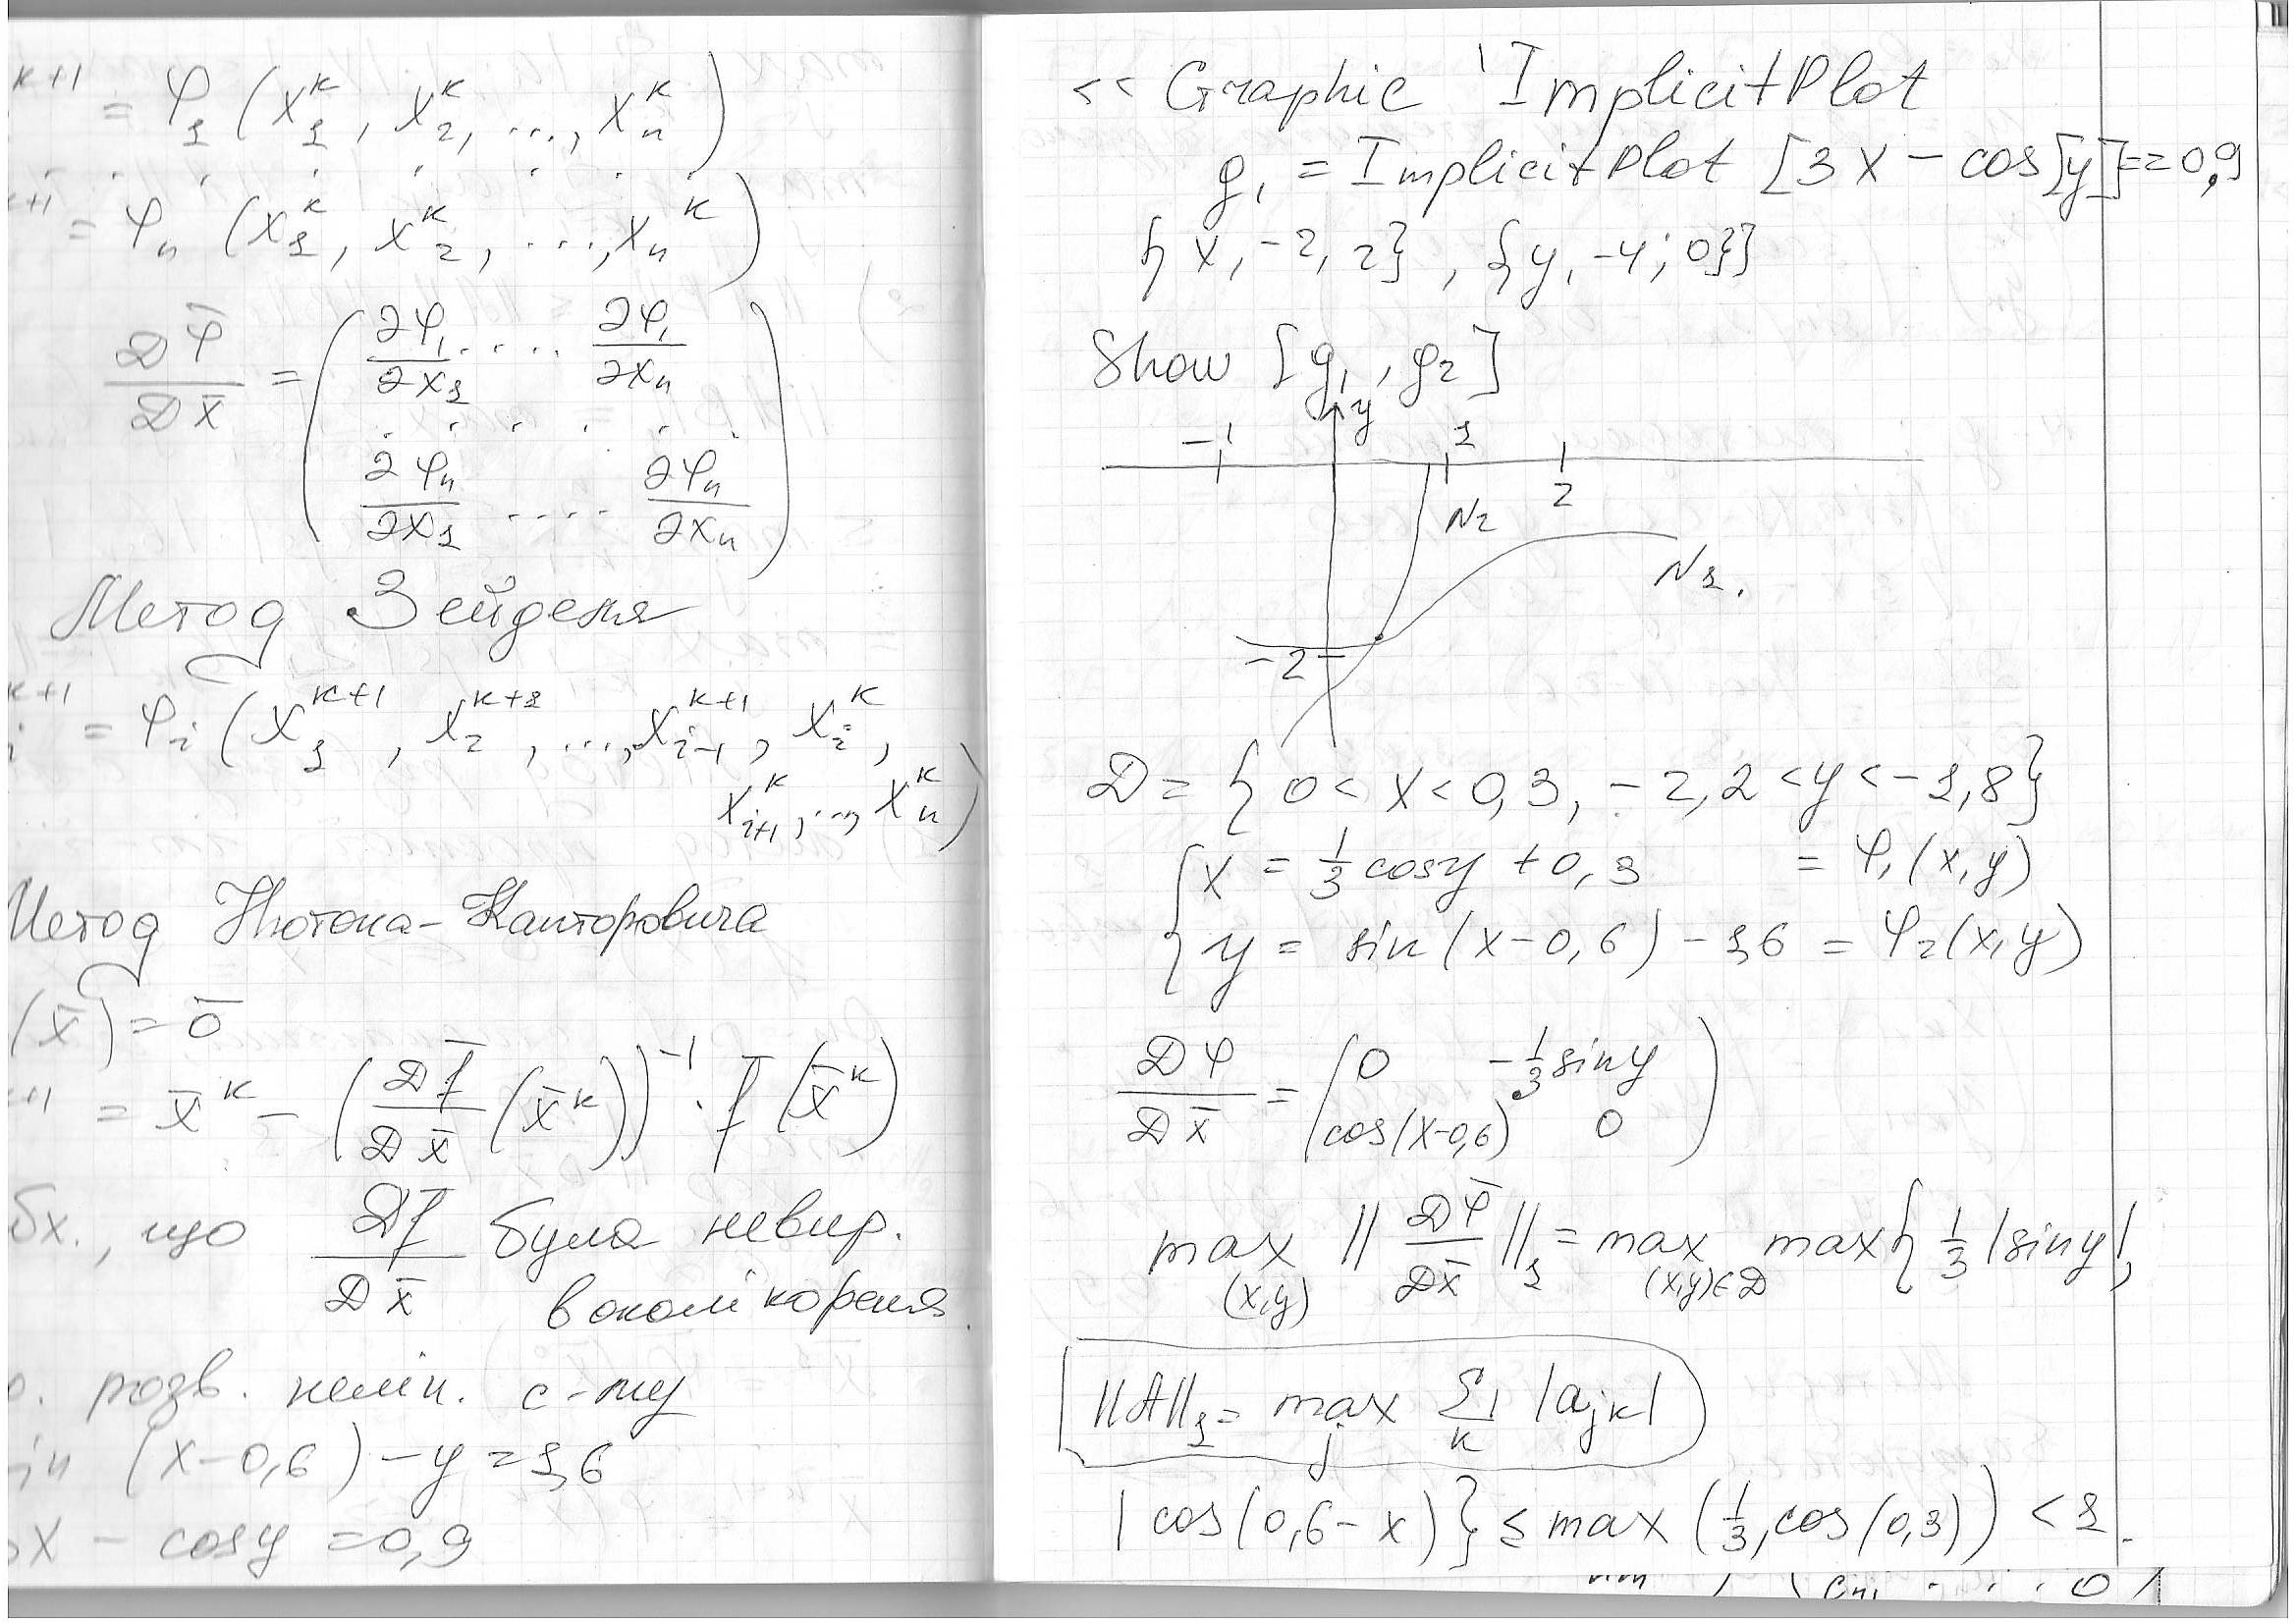 k+1 = φ₁ (x₁ᵏ, x₂ᵏ, ..., xₙᵏ)
. . . . . . . . .
k+1 = φₙ (x₁ᵏ, x₂ᵏ, ..., xₙᵏ)
Dφ̄/Dx̄ = ( ∂φ₁/∂x₁ .... ∂φ₁/∂xₙ
. . . . . .
∂φₙ/∂x₁ .... ∂φₙ/∂xₙ )
Метод Зейделя
i k+1 = φᵢ (x₁ᵏ⁺¹, x₂ᵏ⁺¹, ..., xᵢ₋₁ᵏ⁺¹, xᵢᵏ,
xᵢ₊₁ᵏ, ..., xₙᵏ)
Метод Ньютона-Канторовича
(x̄) = 0̄
k+1 = x̄ᵏ - (Df̄/Dx̄ (x̄ᵏ))⁻¹ · f̄ (x̄ᵏ)
бх., що Df̄/Dx̄ була невир.
в околі кореня.
розв. нелін. с-му
in (x-0,6) - y = 1,6
x - cosy = 0,9
<< Graphic `ImplicitPlot
g₁ = ImplicitPlot [3x - cos[y] == 0,9
{x, -2, 2}, {y, -4; 0}]
Show [g₁, g₂]
y
-1 1 2
N2
N1.
-2
D = {0 < x < 0,3, -2,2 < y < -1,8}
{ x = 1/3 cosy + 0,3 = φ₁(x,y)
y = sin(x-0,6) - 1,6 = φ₂(x,y)
Dφ/Dx̄ = ( 0 -1/3 siny
cos(x-0,6) 0 )
max (x,y) ||Dφ̄/Dx̄||₁ = max (x,y)∈D max{1/3 |siny|,
||A||₁ = max j Σ k |aⱼₖ|
|cos(0,6-x)} ≤ max (1/3, cos(0,3)) < 1.